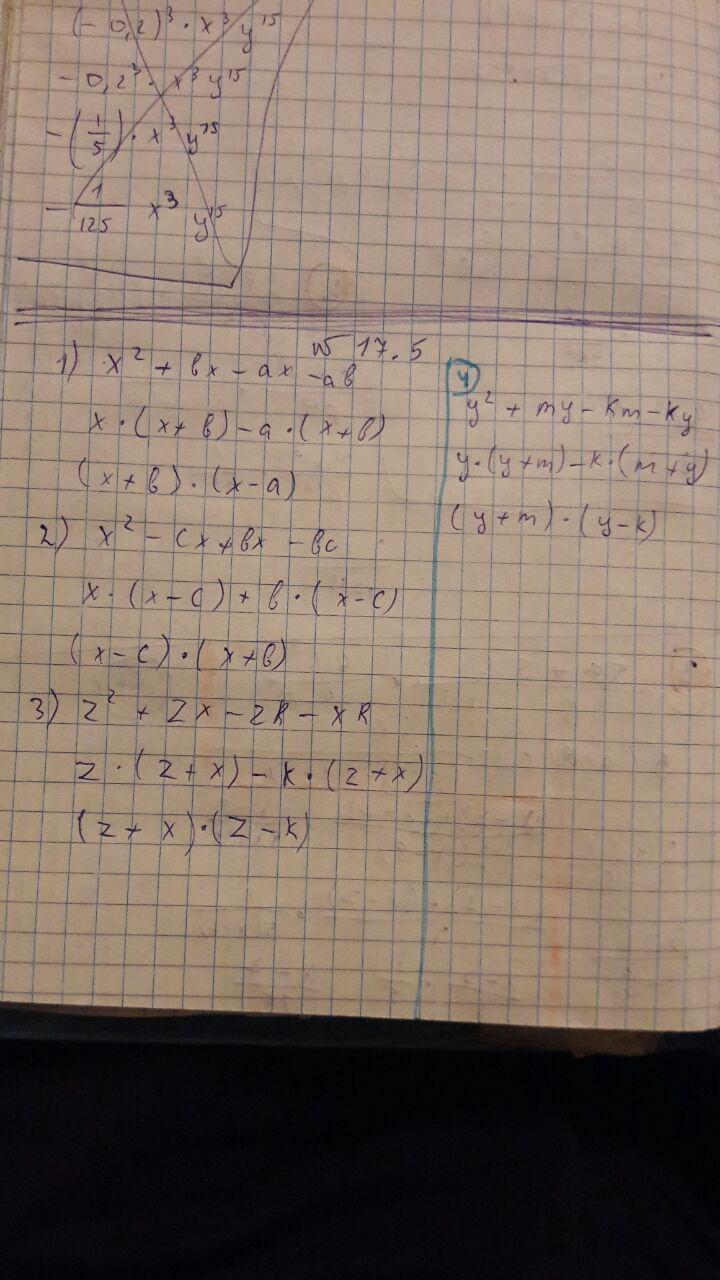 (-0,2)³ · x³ y¹⁵
-0,2³ · x³ y¹⁵
-(1/5) · x³ y¹⁵
-1/125 x³ y¹⁵
№ 17.5
1) x² + вx - ax - aв
x · (x + в) - a · (x + в)
(x + в) · (x - a)
2) x² - cx + вx - вc
x · (x - c) + в · (x - c)
(x - c) · (x + в)
3) z² + zx - zk - xk
z · (z + x) - k · (z + x)
(z + x) · (z - k)
4)
y² + my - km - ky
y · (y + m) - k · (m + y)
(y + m) · (y - k)